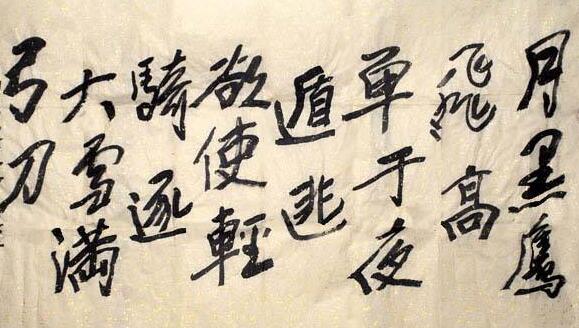 月黑鷹
飛高
单于夜
遁逃
欲使輕
騎逐
大雪满
弓刀